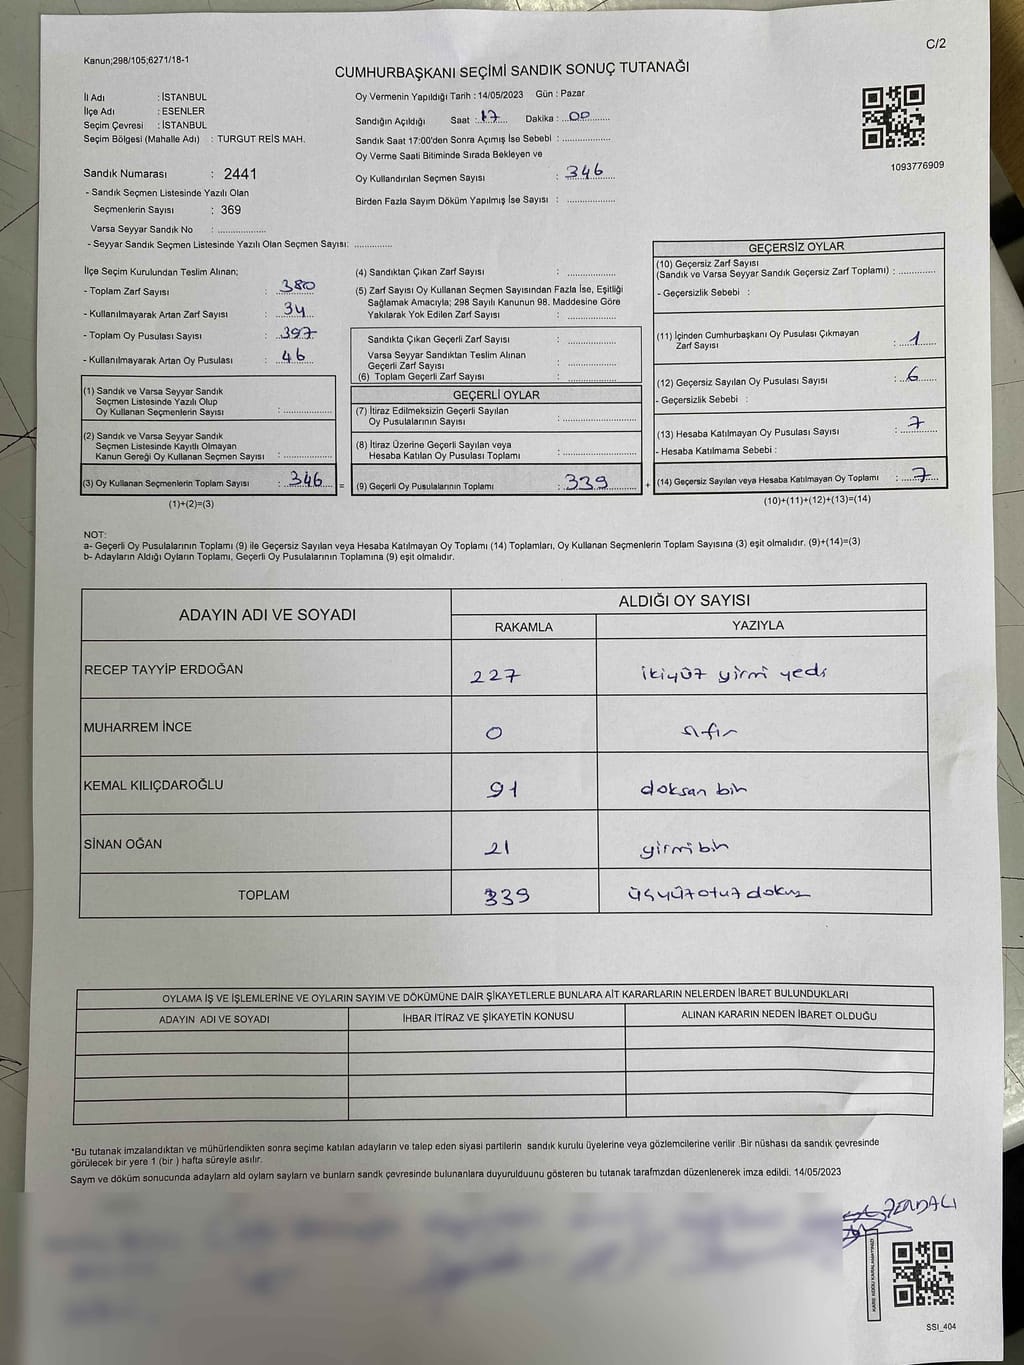 C/2
Kanun;298/105;6271/18-1
CUMHURBAŞKANI SEÇİMİ SANDIK SONUÇ TUTANAĞI
İl Adı : İSTANBUL
İlçe Adı : ESENLER
Seçim Çevresi : İSTANBUL
Seçim Bölgesi (Mahalle Adı) : TURGUT REİS MAH.
Sandık Numarası : 2441
- Sandık Seçmen Listesinde Yazılı Olan
Seçmenlerin Sayısı : 369
Varsa Seyyar Sandık No : ..................
- Seyyar Sandık Seçmen Listesinde Yazılı Olan Seçmen Sayısı: ..............
Oy Vermenin Yapıldığı Tarih : 14/05/2023 Gün : Pazar
Sandığın Açıldığı Saat : 17 Dakika : 00
Sandık Saat 17:00'den Sonra Açımış İse Sebebi : ..................
Oy Verme Saati Bitiminde Sırada Bekleyen ve
Oy Kullandırılan Seçmen Sayısı : 346
Birden Fazla Sayım Döküm Yapılmış İse Sayısı : ..................
1093776909
İlçe Seçim Kurulundan Teslim Alınan;
- Toplam Zarf Sayısı : 380
- Kullanılmayarak Artan Zarf Sayısı : 34
- Toplam Oy Pusulası Sayısı : 397
- Kullanılmayarak Artan Oy Pusulası : 46
(1) Sandık ve Varsa Seyyar Sandık
Seçmen Listesinde Yazılı Olup
Oy Kullanan Seçmenlerin Sayısı : ..................
(2) Sandık ve Varsa Seyyar Sandık
Seçmen Listesinde Kayıtlı Olmayan
Kanun Gereği Oy Kullanan Seçmen Sayısı : ..................
(3) Oy Kullanan Seçmenlerin Toplam Sayısı : 346 =
(1)+(2)=(3)
(4) Sandıktan Çıkan Zarf Sayısı : ..................
(5) Zarf Sayısı Oy Kullanan Seçmen Sayısından Fazla İse, Eşitliği
Sağlamak Amacıyla; 298 Sayılı Kanunun 98. Maddesine Göre
Yakılarak Yok Edilen Zarf Sayısı : ..................
Sandıkta Çıkan Geçerli Zarf Sayısı : ..................
Varsa Seyyar Sandıktan Teslim Alınan
Geçerli Zarf Sayısı : ..................
(6) Toplam Geçerli Zarf Sayısı : ..................
GEÇERLİ OYLAR
(7) İtiraz Edilmeksizin Geçerli Sayılan
Oy Pusulalarının Sayısı : ..................
(8) İtiraz Üzerine Geçerli Sayılan veya
Hesaba Katılan Oy Pusulası Toplamı : ..................
(9) Geçerli Oy Pusulalarının Toplamı : 339 +
GEÇERSİZ OYLAR
(10) Geçersiz Zarf Sayısı
(Sandık ve Varsa Seyyar Sandık Geçersiz Zarf Toplamı) : ..............
- Geçersizlik Sebebi :
(11) İçinden Cumhurbaşkanı Oy Pusulası Çıkmayan
Zarf Sayısı : 1
(12) Geçersiz Sayılan Oy Pusulası Sayısı : 6
- Geçersizlik Sebebi :
(13) Hesaba Katılmayan Oy Pusulası Sayısı : 7
- Hesaba Katılmama Sebebi :
(14) Geçersiz Sayılan veya Hesaba Katılmayan Oy Toplamı : 7
(10)+(11)+(12)+(13)=(14)
NOT:
a- Geçerli Oy Pusulalarının Toplamı (9) ile Geçersiz Sayılan veya Hesaba Katılmayan Oy Toplamı (14) Toplamları, Oy Kullanan Seçmenlerin Toplam Sayısına (3) eşit olmalıdır. (9)+(14)=(3)
b- Adayların Aldığı Oyların Toplamı, Geçerli Oy Pusulalarının Toplamına (9) eşit olmalıdır.
ADAYIN ADI VE SOYADI ALDIĞI OY SAYISI
RAKAMLA YAZIYLA
RECEP TAYYİP ERDOĞAN 227 ikiyüz yirmi yedi
MUHARREM İNCE 0 sıfır
KEMAL KILIÇDAROĞLU 91 doksan bir
SİNAN OĞAN 21 yirmi bir
TOPLAM 339 üçyüz otuz dokuz
OYLAMA İŞ VE İŞLEMLERİNE VE OYLARIN SAYIM VE DÖKÜMÜNE DAİR ŞİKAYETLERLE BUNLARA AİT KARARLARIN NELERDEN İBARET BULUNDUKLARI
ADAYIN ADI VE SOYADI İHBAR İTİRAZ VE ŞİKAYETİN KONUSU ALINAN KARARIN NEDEN İBARET OLDUĞU
*Bu tutanak imzalandıktan ve mühürlendikten sonra seçime katılan adayların ve talep eden siyasi partilerin sandık kurulu üyelerine veya gözlemcilerine verilir .Bir nüshası da sandık çevresinde
görülecek bir yere 1 (bir ) hafta süreyle asılır.
Saym ve döküm sonucunda adaylarn ald oylam saylarn ve bunlarn sandk çevresinde bulunanlara duyurulduunu gösteren bu tutanak tarafmzdan düzenlenerek imza edildi. 14/05/2023
SSI_404